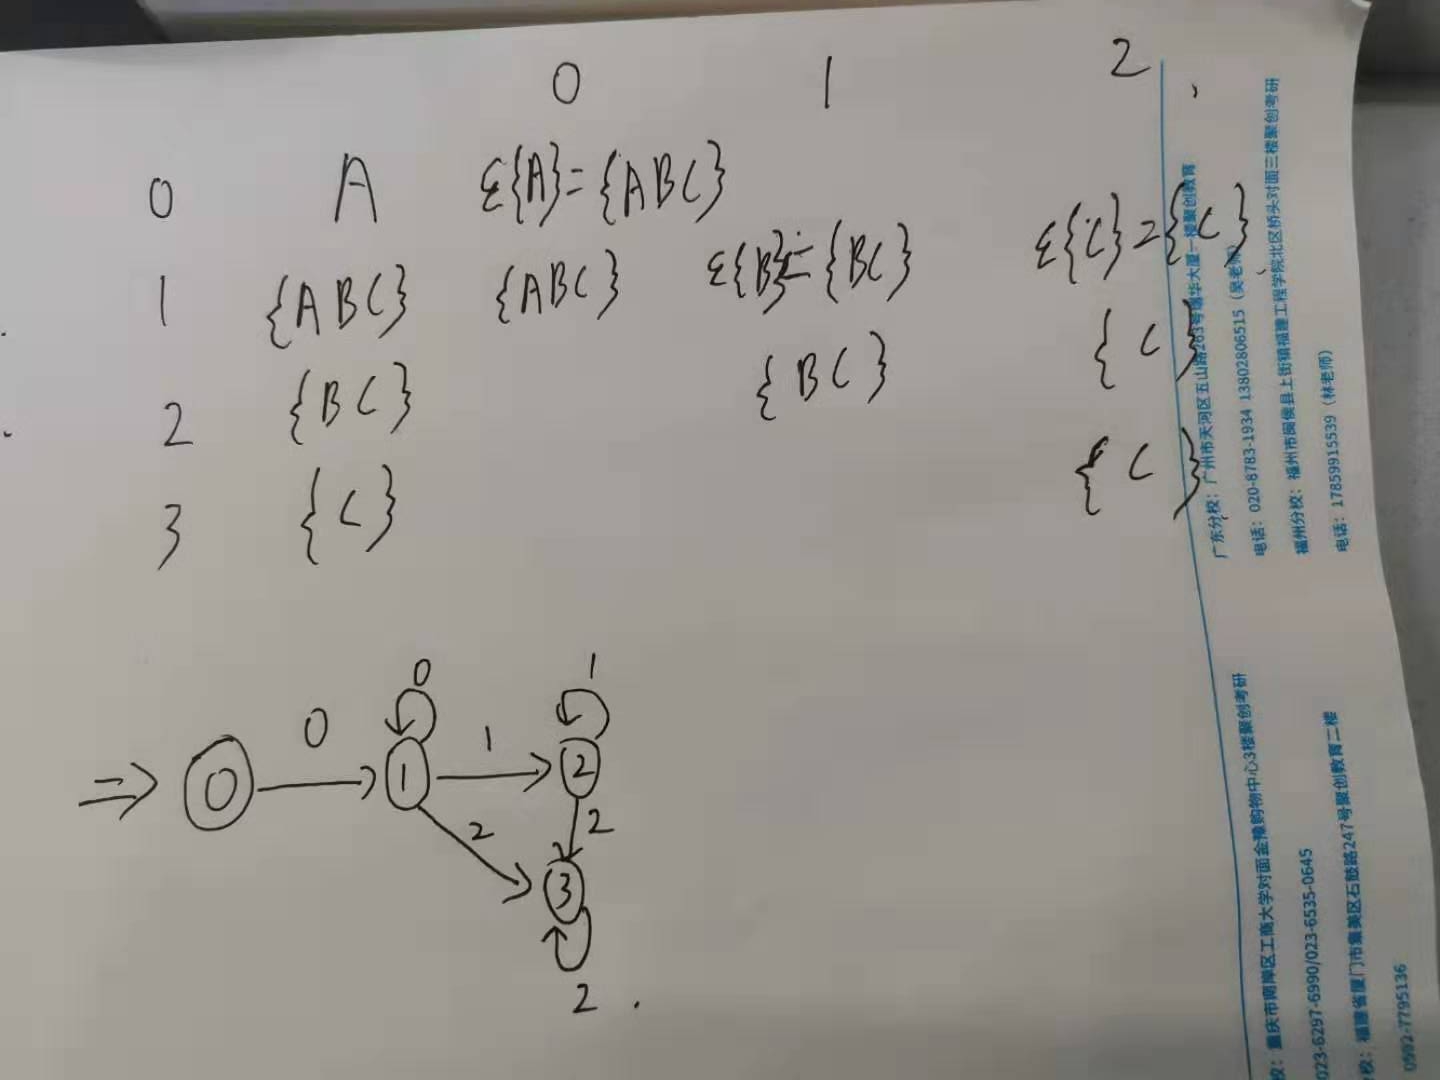 0 1 2
0 A ε{A}={ABC}
1 {ABC} {ABC} ε{B}={BC} ε{C}={C}
2 {BC} {BC} {C}
3 {C} {C}
0 0 1
⇒ 0 1 1 2
2 2
3
2
广州市天河区五山路263号
楼聚创教育
广东分校:
电话: 020-8783-1934 13802806515
福州分校: 福州市闽侯县上街镇福建工程学院北区桥头对面三楼聚创考研
电话: 17859915539 (林老师)
校: 重庆市南岸区工商大学对面金臻购物中心3楼聚创考研
023-6297-6990/023-6535-0645
校: 福建省厦门市集美区石鼓路247号聚创教育二楼
0592-7795136